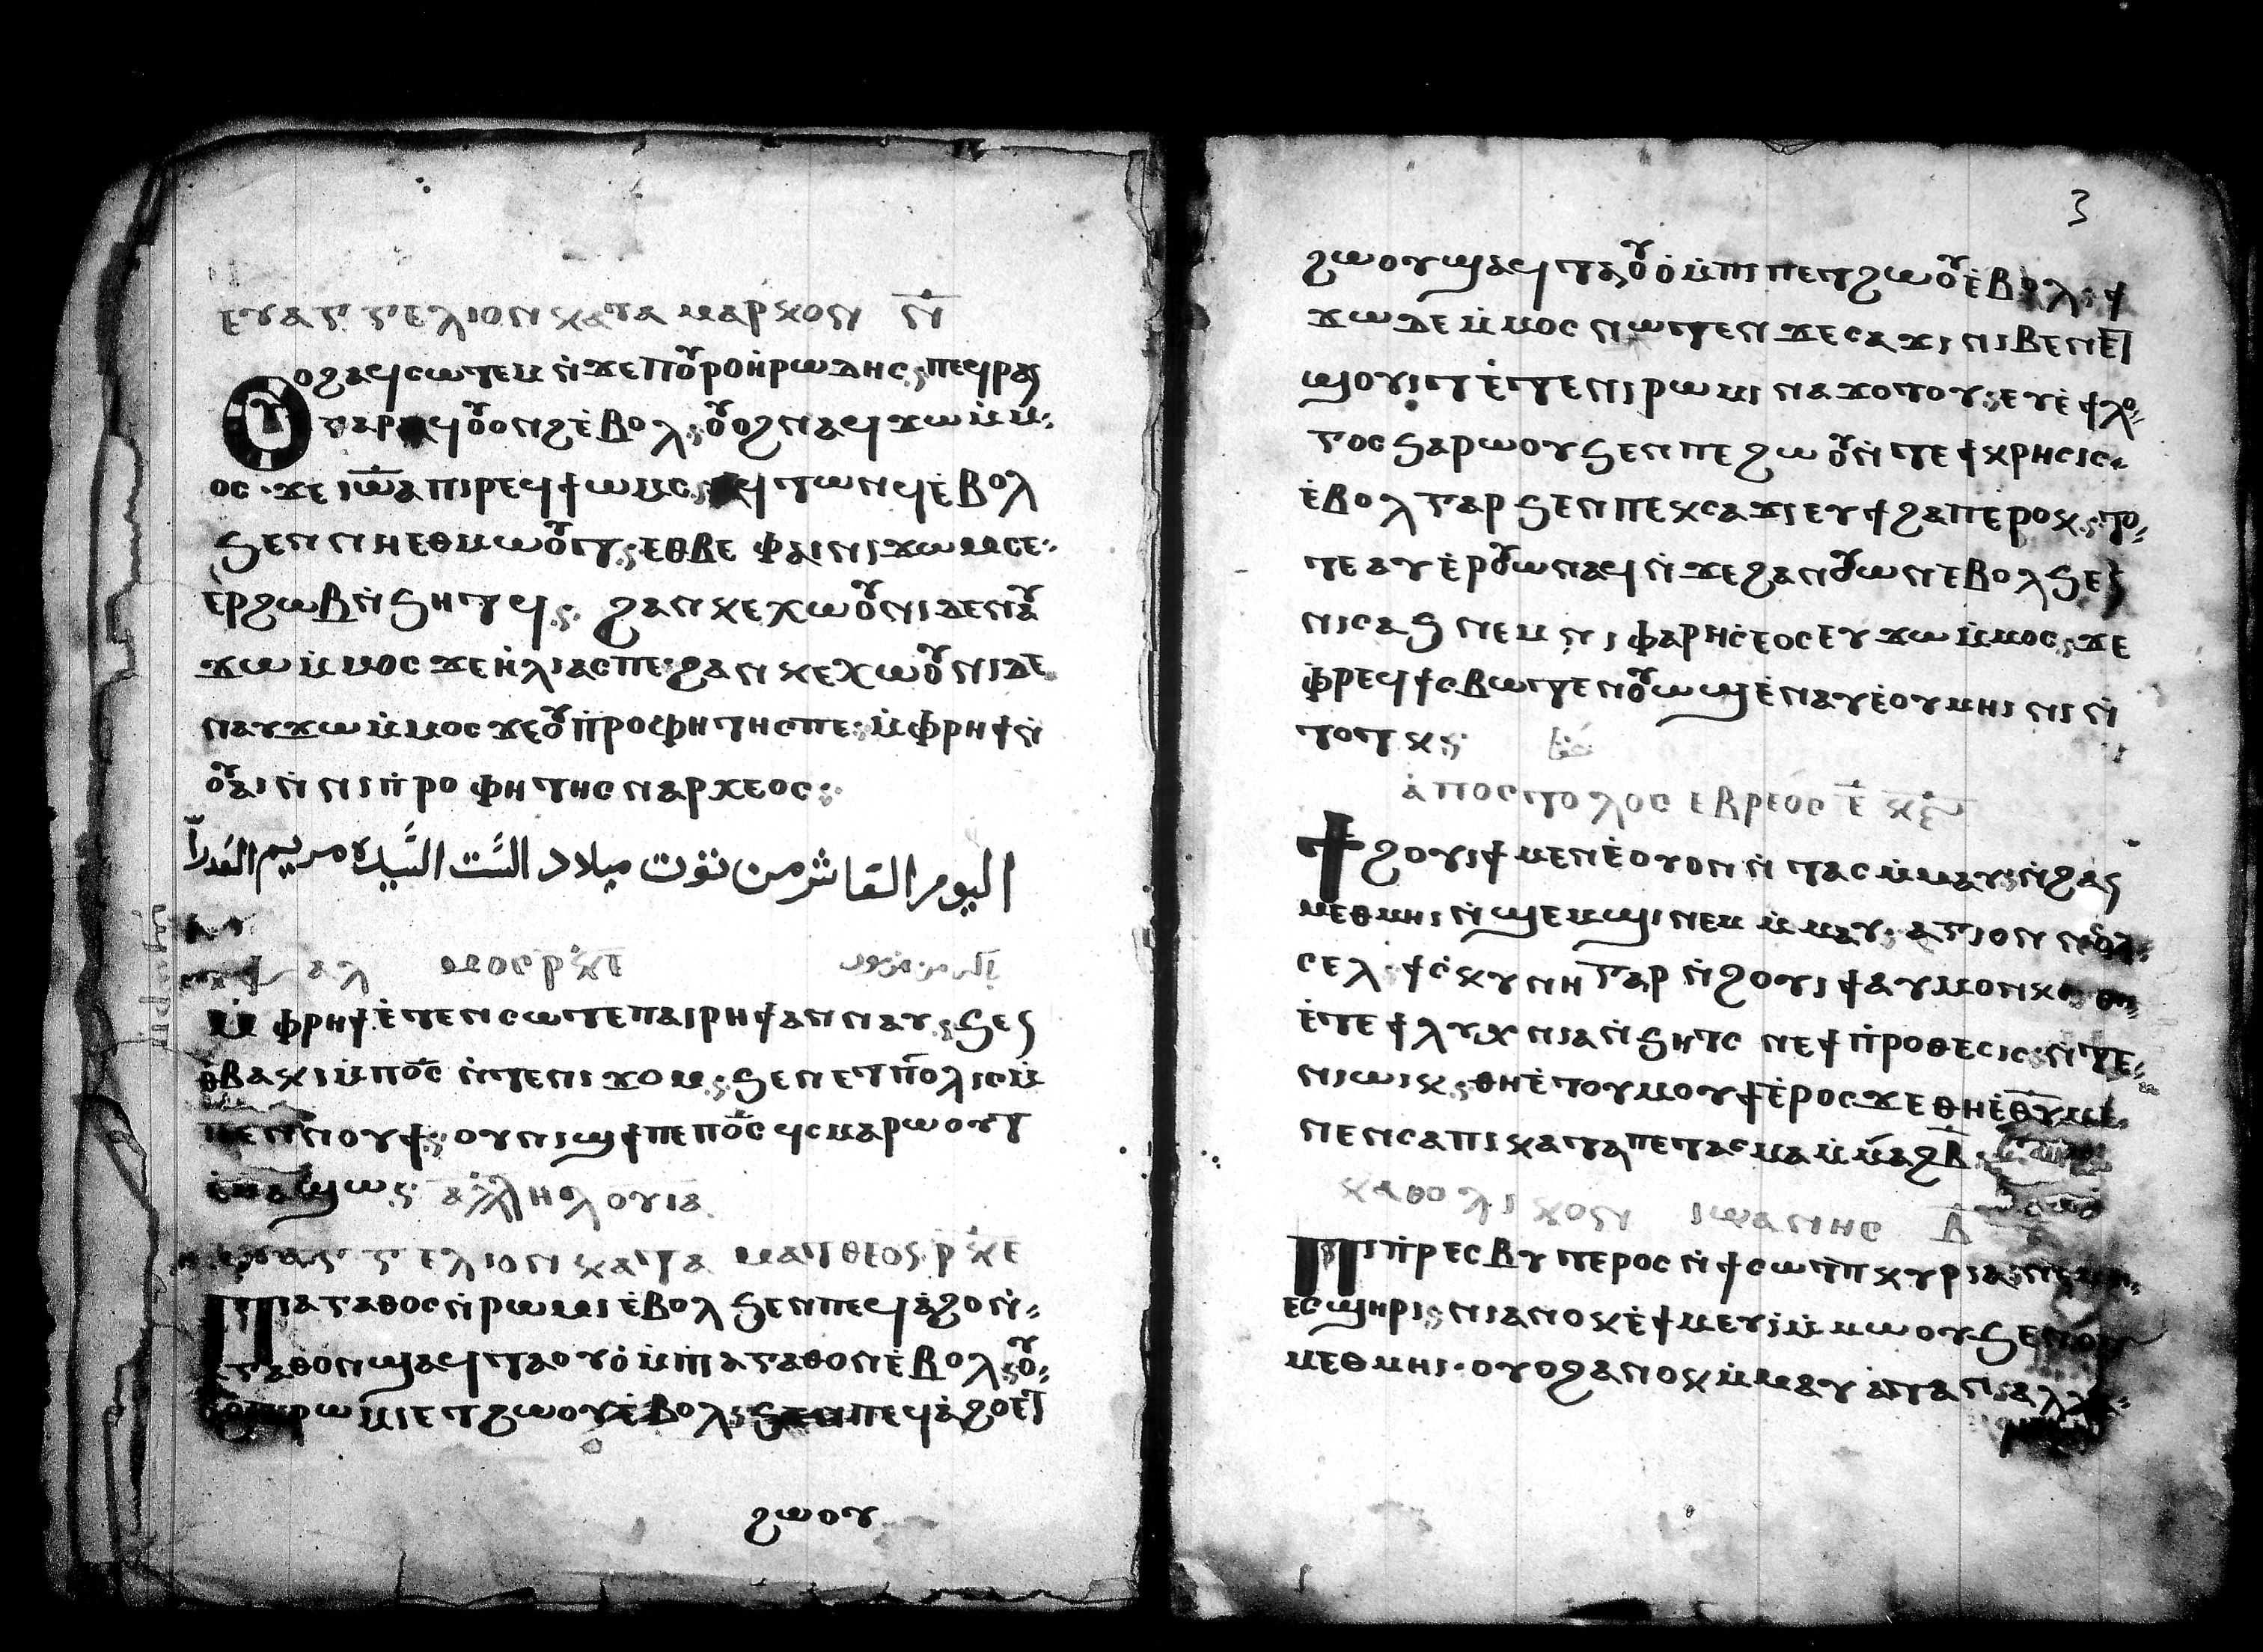 ⲉⲩⲁⲅⲅⲉⲗⲓⲟⲛ ⲕⲁⲧⲁ ⲙⲁⲣⲕⲟⲛ ⲛ̅
Ⲟⲩⲟϩ ⲁϥⲥⲱⲧⲉⲙ ⲛ̀ϫⲉ ⲡⲟⲩⲣⲟ ⲏ̀ⲣⲱⲇⲏⲥ ⲡⲉϥⲣⲁⲛ
ⲅⲁⲣ ⲁϥⲟⲩⲟⲛϩ ⲉ̀ⲃⲟⲗ ⲟⲩⲟϩ ⲛⲁϥϫⲱ ⲙ̀ⲙ
ⲟⲥ ϫⲉ ⲓⲱ̅ⲁ ⲡⲓⲣⲉϥϯⲱⲙⲥ ⲁϥⲧⲱⲛϥ ⲉ̀ⲃⲟⲗ
ϧⲉⲛ ⲛⲏ ⲉⲑⲙⲱⲟⲩⲧ ⲉⲑⲃⲉ ⲫⲁⲓ ⲛⲓϫⲱⲙ ⲥⲉ
ⲉⲣϩⲱⲃ ⲛ̀ϧⲏⲧϥ ϩⲁⲛⲕⲉⲭⲱⲟⲩⲛⲓ ⲇⲉ ⲛⲁⲩ
ϫⲱ ⲙ̀ⲙⲟⲥ ϫⲉ ⲏ̀ⲗⲓⲁⲥ ⲡⲉ ϩⲁⲛⲕⲉⲭⲱⲟⲩⲛⲓ ⲇⲉ
ⲛⲁⲩϫⲱ ⲙ̀ⲙⲟⲥ ϫⲉ ⲟⲩⲡ̀ⲣⲟⲫⲏⲧⲏⲥ ⲡⲉ ⲙ̀ⲫⲣⲏϯ ⲛ̀
ⲟⲩⲁⲓ ⲛ̀ⲛⲓⲡ̀ⲣⲟⲫⲏⲧⲏⲥ ⲛⲁⲣⲭⲉⲟⲥ
اليوم العاشر من توت ميلاد الست السيده مريم العدرآ
ⲯⲁⲗⲙⲟⲥ ⲣⲕⲉ
ⲙ̀ⲫⲣⲏϯ ⲉ̀ⲧⲉⲛⲥⲱⲧⲉⲙ ⲡⲁⲓⲣⲏϯ ⲁⲛⲛⲁⲩ ϧⲉⲛ
ⲑ̀ⲃⲁⲕⲓ ⲙ̀ⲡⲟ̅ⲥ ⲛ̀ⲧⲉ ⲛⲓϫⲟⲙ ϧⲉⲛ ⲉⲧⲡⲟⲗⲓⲥ ⲙ̀
ⲡⲉⲛⲛⲟⲩϯ ⲟⲩⲛⲓϣϯ ⲡⲉ ⲡⲟ̅ⲥ ϥⲥⲙⲁⲣⲱⲟⲩⲧ
ⲉ̀ⲙⲁϣⲱ ⲁⲗⲗⲏⲗⲟⲩⲓⲁ
ⲉⲩⲁⲅⲅⲉⲗⲓⲟⲛ ⲕⲁⲧⲁ ⲙⲁⲧⲑⲉⲟⲥ ⲣⲕⲉ
Ⲡⲓⲁⲅⲁⲑⲟⲥ ⲛ̀ⲣⲱⲙⲓ ⲉ̀ⲃⲟⲗ ϧⲉⲛ ⲡⲉϥⲁ̀ϩⲟ ⲛ̀
ⲁⲅⲁⲑⲟⲛ ϣⲁϥⲧⲁⲟⲩⲟ̀ ⲙ̀ⲡⲓⲁⲅⲁⲑⲟⲛ ⲉ̀ⲃⲟⲗ ⲟⲩ
ⲟϩ ⲡⲓⲣⲱⲙⲓ ⲉⲧϩⲱⲟⲩ ⲉ̀ⲃⲟⲗ ϧⲉⲛ ⲡⲉϥⲁ̀ϩⲟ ⲉⲧ
ϩⲱⲟⲩ
3
ϩⲱⲟⲩ ϣⲁϥⲧⲁⲟⲩⲟ̀ ⲙ̀ⲡⲓⲡⲉⲧϩⲱⲟⲩ ⲉ̀ⲃⲟⲗ ϯ
ϫⲱ ⲇⲉ ⲙ̀ⲙⲟⲥ ⲛⲱⲧⲉⲛ ϫⲉ ⲥⲁϫⲓ ⲛⲓⲃⲉⲛ ⲉⲧ
ϣⲟⲩⲓⲧ ⲉ̀ⲧⲉ ⲛⲓⲣⲱⲙⲓ ⲛⲁϫⲟⲧⲟⲩ ⲉⲩⲉ̀ϯⲗⲟ
ⲅⲟⲥ ϧⲁⲣⲱⲟⲩ ϧⲉⲛ ⲡⲉϩⲱⲟⲩ ⲛ̀ⲧⲉ ϯⲕⲣⲏⲥⲓⲥ
ⲉ̀ⲃⲟⲗ ⲅⲁⲣ ϧⲉⲛ ⲡⲉⲕⲥⲁϫⲓ ⲉⲩϯϩⲁⲡ ⲉⲣⲟⲕ ⲧⲟ
ⲧⲉ ⲁⲩⲉ̀ⲣⲟⲩⲱ ⲛⲁϥ ⲛ̀ϫⲉ ϩⲁⲛⲟⲩⲱⲛ ⲉ̀ⲃⲟⲗ ϧⲉⲛ
ⲛⲓⲥⲁϧ ⲛⲉⲙ ⲛⲓⲫⲁⲣⲏⲥⲉⲟⲥ ⲉⲩϫⲱ ⲙ̀ⲙⲟⲥ ϫⲉ
ⲫ̀ⲣⲉϥϯⲥⲃⲱ ⲧⲉⲛⲟⲩⲱϣ ⲉ̀ⲛⲁⲩ ⲉ̀ⲟⲩⲙⲏⲓⲛⲓ ⲛ̀
ⲧⲟⲧⲕ
ⲁ̀ⲡⲟⲥⲧⲟⲗⲟⲥ ⲉⲃⲣⲉⲟⲥ ⲉ̅
Ϯϩⲟⲩⲓϯ ⲙⲉⲛ ⲉ̀ⲟⲩⲟⲛⲛ̀ⲧⲁⲥ ⲙ̀ⲙⲁⲩ ⲛ̀ϩⲁⲛ
ⲙⲉⲑⲙⲏⲓ ⲛ̀ϣⲉⲙϣⲓ ⲛⲉⲙ ⲙ̀ⲙⲁⲩ ⲁⲅⲓⲟⲛ ⲛ̀ⲟⲗ
ⲥⲉⲗ ϯⲥ̀ⲕⲩⲛⲏ ⲅⲁⲣ ⲛ̀ϩⲟⲩⲓϯ ⲁⲩⲙⲟⲛⲕⲥ ⲑⲏ
ⲉ̀ⲧⲉ ϯⲗⲩⲭⲛⲓⲁ ⲛ̀ϧⲏⲧⲥ ⲛⲉⲙ ϯⲡ̀ⲣⲟⲑⲉⲥⲓⲥ ⲛ̀ⲧⲉ
ⲛⲓⲱⲓⲕ ⲑⲏ ⲉ̀ⲧⲟⲩⲙⲟⲩϯ ⲉ̀ⲣⲟⲥ ϫⲉ ⲑⲏ ⲉ̀ⲑⲩ ⲙⲉ
ⲛⲉⲛⲥⲁ ⲡⲓⲕⲁⲧⲁⲡⲉⲧⲁⲥⲙⲁ ⲙ̀ⲙⲁϩⲃ̅
ⲕⲁⲑⲟⲗⲓⲕⲟⲛ ⲓⲱⲁⲛⲛⲏⲥ ⲃ̅
Ⲡⲓⲡ̀ⲣⲉⲥⲃⲩⲧⲉⲣⲟⲥ ⲛ̀ϯⲥⲱⲧⲡ ⲕⲩⲣⲓⲁ ⲛⲉⲙ ⲛ
ⲉⲥϣⲏⲣⲓ ⲛⲓ ⲁⲛⲟⲕ ⲉ̀ϯⲙⲉⲩⲓ ⲙ̀ⲙⲱⲟⲩ ϧⲉⲛ ⲟⲩ
ⲙⲉⲑⲙⲏⲓ ⲟⲩⲟϩ ⲁⲛⲟⲕ ⲙ̀ⲙⲁⲩⲁ̀ⲧ ⲁⲛ ⲁⲗⲗⲁ